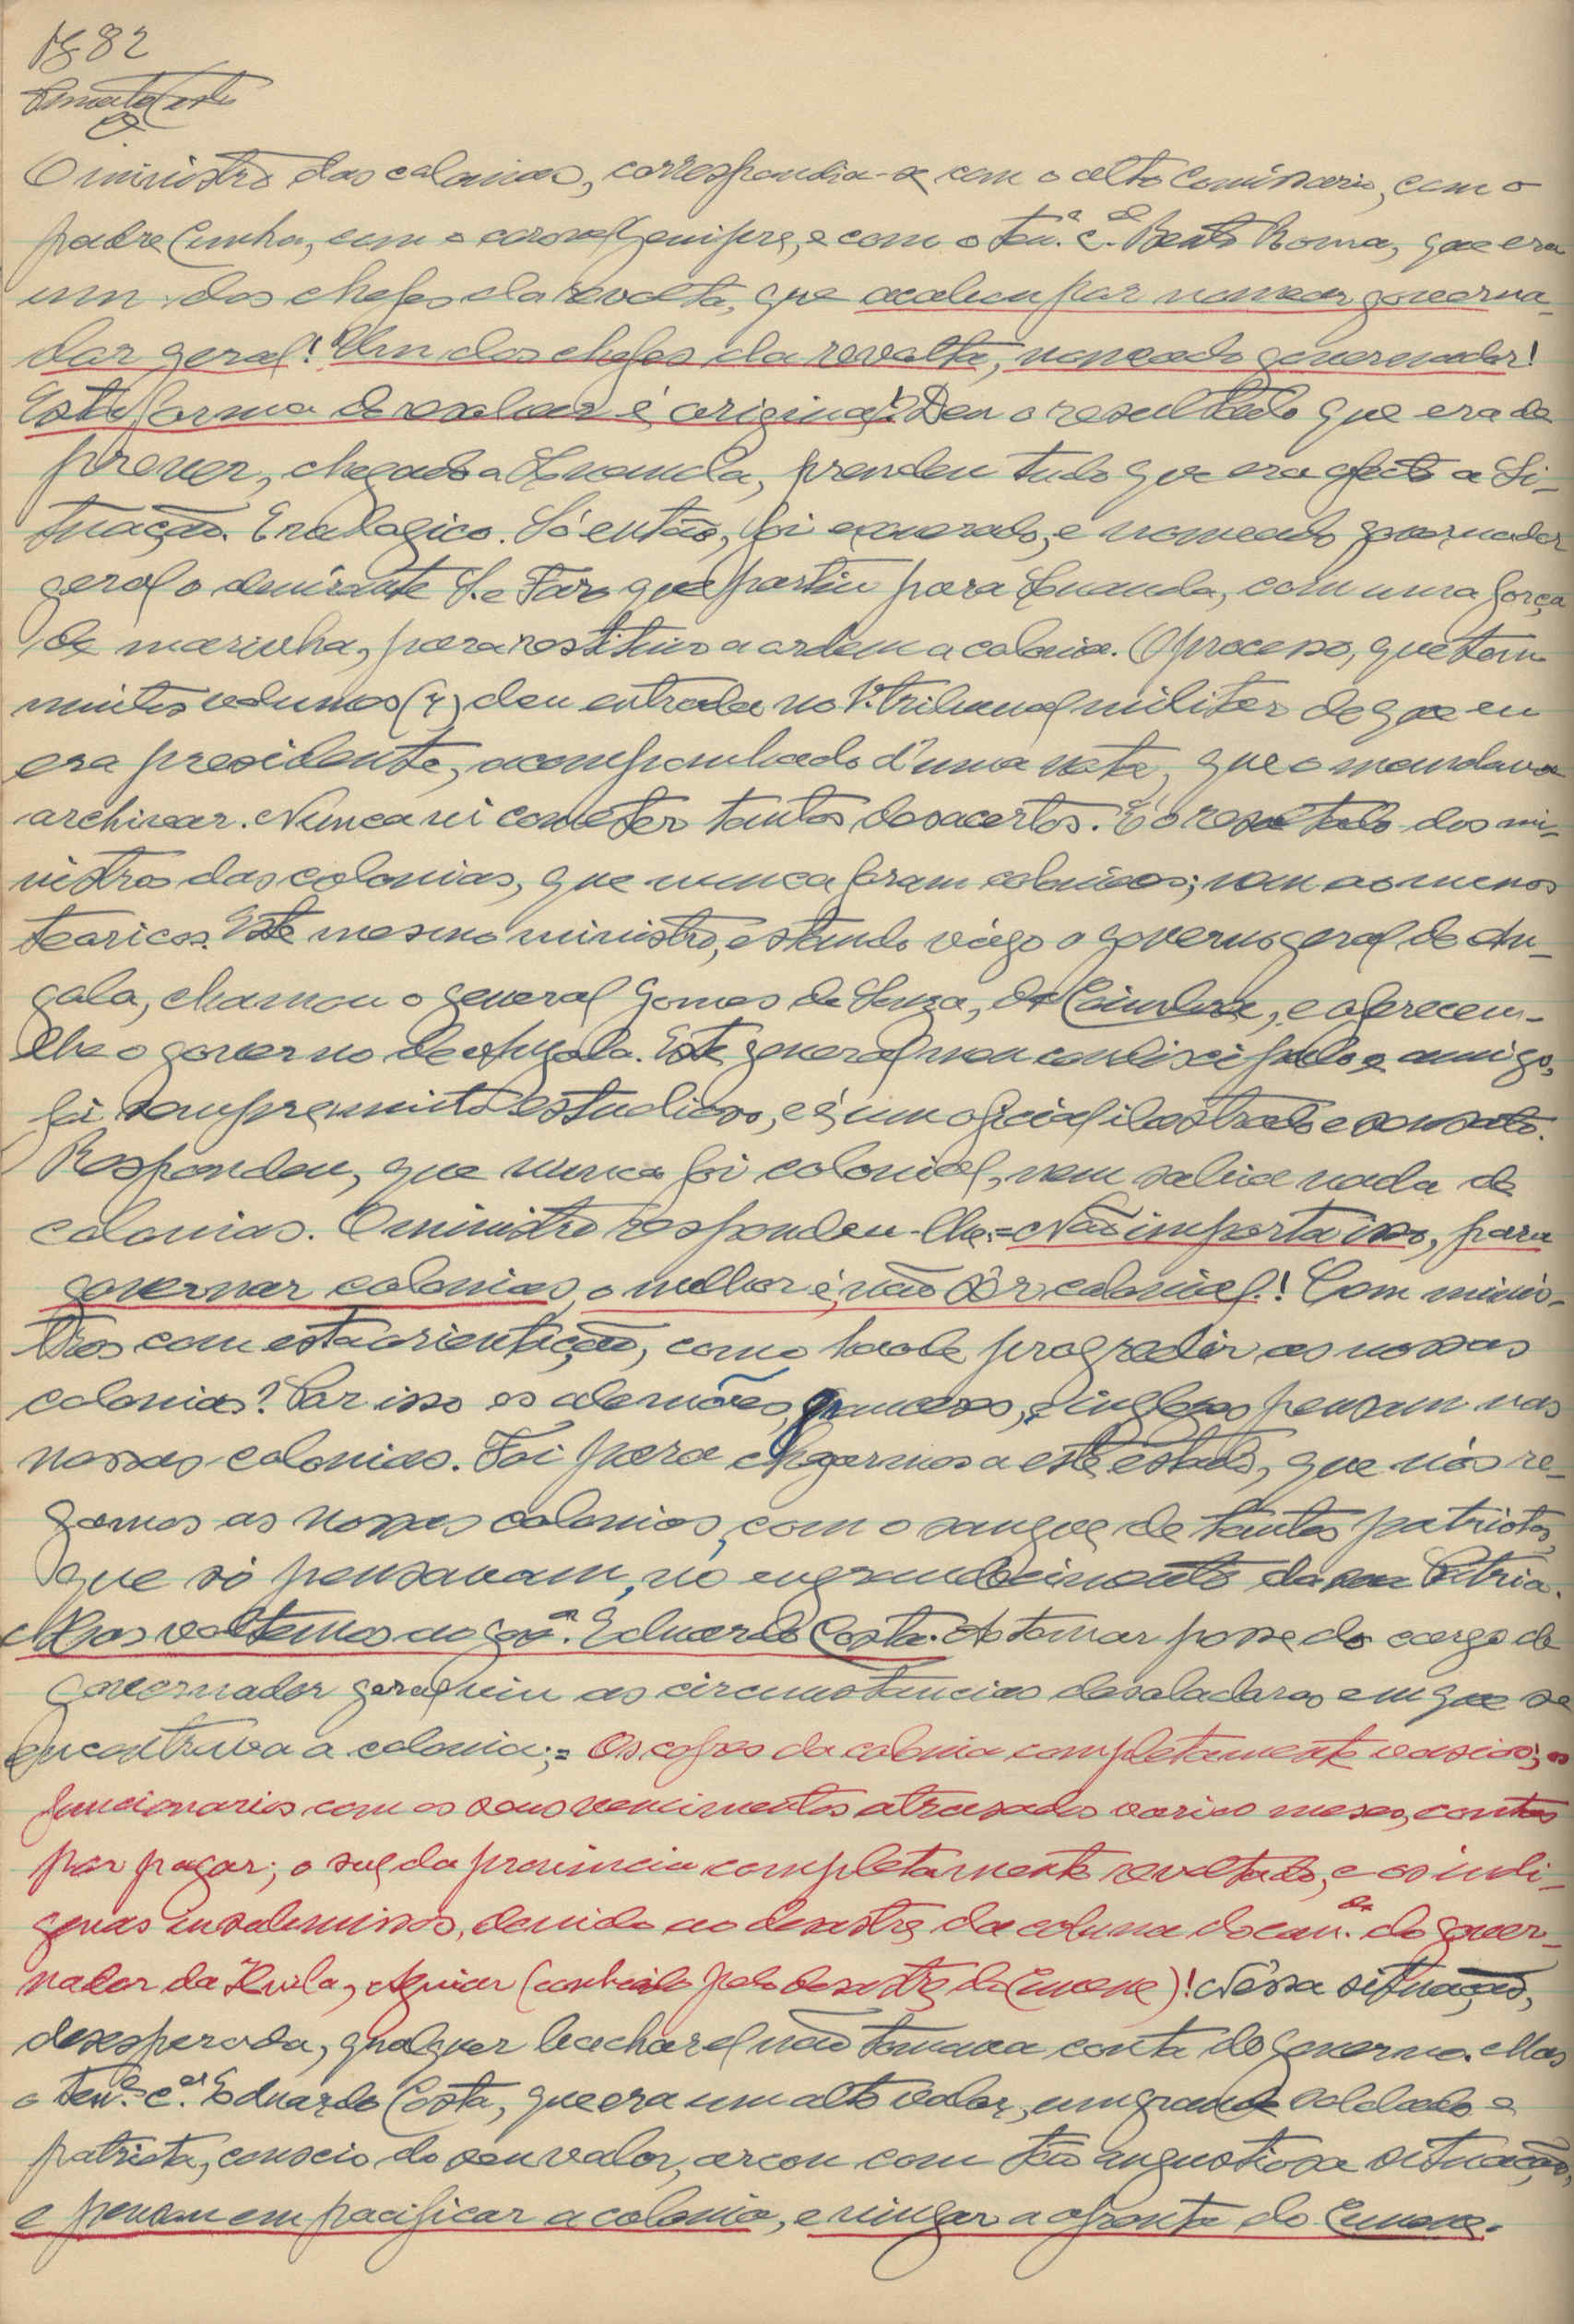 1882
O ministro das colonias, correspondia-se com o alto Comissario, com o
padre Cunha, com o coronel Genipro, e com o ten.e c.el Bento Roma, que era
um dos chefes da revolta, que acabou por nomear governa-
dor geral! Um dos chefes da revolta, nomeado governador!
Esta forma de resolver é original! Deu o resultado que era de
prever, chegado a Luanda, prendeu tudo que era afecto a Si-
tuação. Era logico. Só então, foi exonerado, e nomeado governador
geral o almirante S. e Faro que partiu para Luanda, com uma força
de marinha, para restituir a ordem a colonia. O processo, que tem
muitos volumes (4) deu entrada no 1.º tribunal militar de que eu
era presidente, acompanhado d'uma nota, que o mandava
archivar. Nunca vi cometer tantos desacertos. É o resultado dos mi-
nistros das colonias, que nunca foram coloniaes; nem ao menos
teoricos. Este mesmo ministro, estando vago o governo geral de An-
gola, chamou o general Gomes de Souza, de Coimbra, e ofereceu-
lhe o governo de Angola. Este general meu condiscipulo e amigo,
foi sempre muito estudioso, e é um oficial ilustrado e sensato.
Respondeu, que nunca foi colonial, nem sabia nada de
colonias. O ministro respondeu-lhe:= Não importa isso, para
governar colonias, o melhor é, não sêr colonial! Com minis-
tros com esta orientação, como hade progredir as nossas
colonias? Por isso os alemães, franceses, e inglezes pensam nas
nossas colonias. Foi para chegarmos a este estado, que nós re-
gamos as nossas colonias, com o sangue de tantos patriotas,
que só pensavam, no engrandecimento da sua Patria.
Mas voltemos ao gov.or Eduardo Costa. Ao tomar posse do cargo de
governador geral viu as circumstancias desoladoras em que se
encontrava a colonia;= Os cofres da colonia completamente vasios; os
funcionarios com os seus vencimentos atrasados varios meses, contas
por pagar; o sul da provincia completamente revoltado, e os indi-
genas insolentissimos, devido ao desastre da coluna do com.do do gover-
nador da Huila, Aguiar (conhecido pelo desastre do Cunene)! Nessa situação,
desesperada, qualquer bacharel não tomava conta do governo. Mas
o ten.e c.el Eduardo Costa, que era um alto valor, um grande soldado e
patriota, conscio do seu valor, arcou com tão angustiosa situação,
e pensou em pacificar a colonia, e vingar a afronta do Cunene.